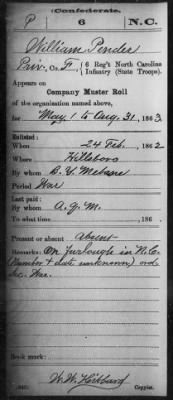 Confederate.
P 6 N.C.
William Pender
Priv. Co. F, 6 Reg't North Carolina
Infantry (State Troops).
Appears on
Company Muster Roll
of the organization named above,
for May 1 to Aug. 31, 1863
Enlisted:
When 24 Feb., 1862
Where Hillsboro
By whom B. Y. Mebane
Period War
Last paid:
By whom A. Q. M.
To what time , 186 .
Present or absent absent
Remarks: On furlough in N.C.
(number & date unknown) ord.
Sec. War.
Book mark:
W. W. Hibbard
Copyist.